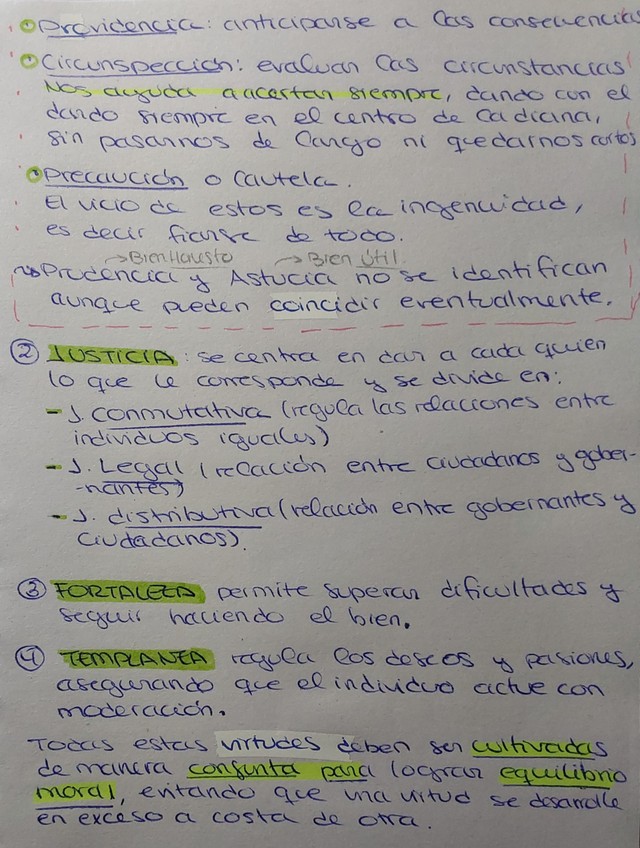 Providencia: anticiparse a las consecuencias
Circunspección: evaluar las circunstancias
Nos ayuda a acertar siempre, dando con el
dando siempre en el centro de la diana,
sin pasarnos de largo ni quedarnos cortos
Precaución o cautela.
El vicio de estos es la ingenuidad,
es decir fiarse de todo.
→Bien Honesto →Bien Útil
Prudencia y Astucia no se identifican
aunque pueden coincidir eventualmente.
② JUSTICIA: se centra en dar a cada quien
lo que le corresponde y se divide en:
- J. conmutativa (regula las relaciones entre
individuos iguales)
- J. Legal (relación entre ciudadanos y gober-
-nantes)
- J. distributiva (relación entre gobernantes y
ciudadanos).
③ FORTALEZA permite superar dificultades y
seguir haciendo el bien.
④ TEMPLANZA regula los deseos y pasiones,
asegurando que el individuo actue con
moderación.
Todas estas virtudes deben ser cultivadas
de manera conjunta para lograr equilibrio
moral, evitando que una virtud se desarrolle
en exceso a costa de otra.